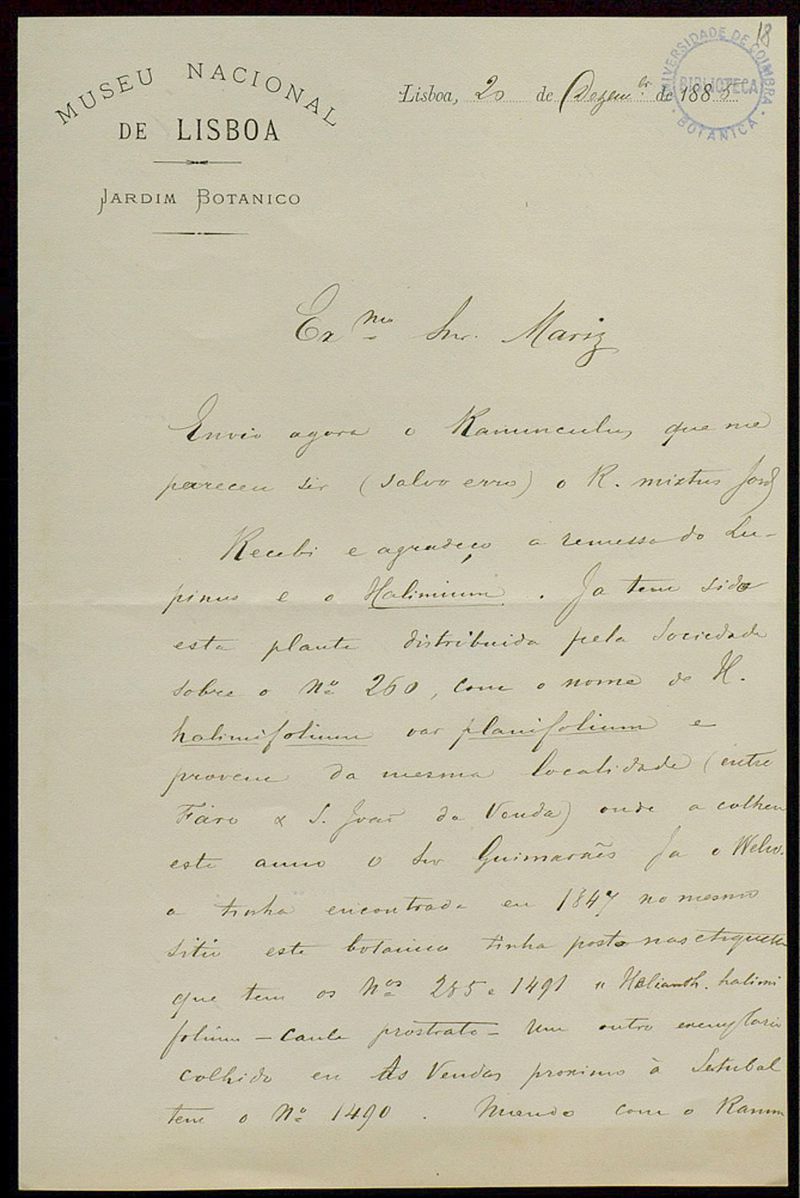 18
UNIVERSIDADE DE COIMBRA
BIBLIOTECA
BOTANICA
MUSEU NACIONAL
DE LISBOA
JARDIM BOTANICO
Lisboa, 20 de Dezembr. de 1885
Exmo Snr. Mariz
Envio agora o Ranunculus, que me
pareceu ser (salvo erro) o R. mixtus Jord
Recebi e agradeço a remessa do Lu-
pinus e o Halimium. Ja tem sido
esta planta distribuida pela Sociedade
sobre o Nº 260, com o nome de H.
halimifolium var planifolium e
provem da mesma localidade (entre
Faro & S. João da Venda) onde a colheu
este anno o Snr Guimarães Ja o Welw.
a tinha encontrada en 1847 no mesmo
sitio este botanico tinha posto nas etiquettas
que tem os Nos 285 e 1491 " Helianth. halimi
folium - caule prostrato - Um outro exemplario
colhido en As Vendas proximo à Setubal
tem o Nº 1490. Mando com o Ranun